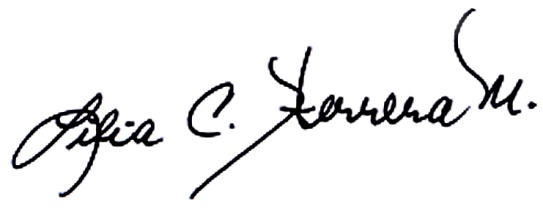 Lilia C. Herrera M.